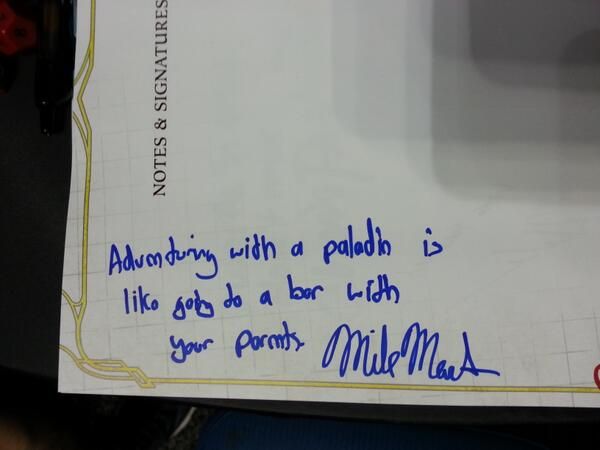 NOTES & SIGNATURES
Adventuring with a paladin is
like going to a bar with
your parents.